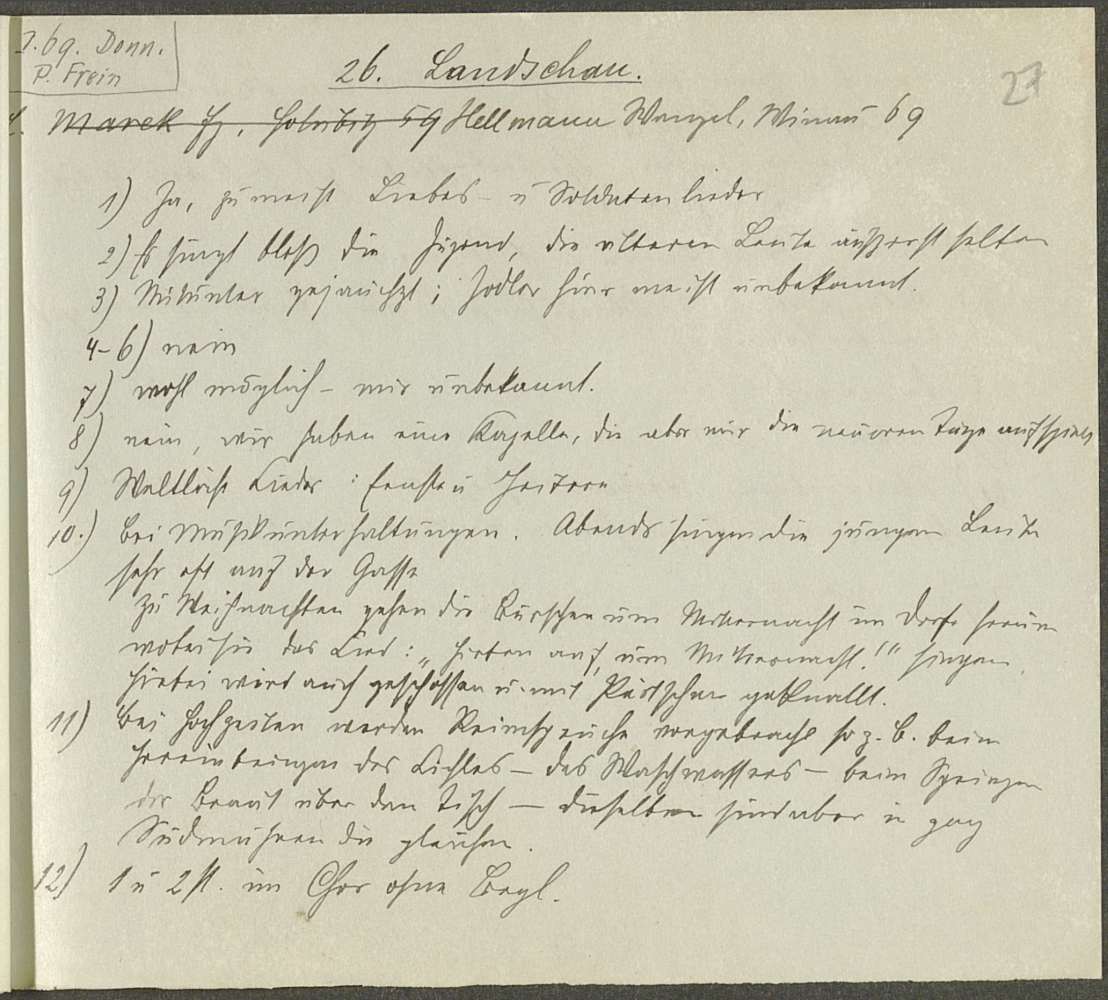 J. 69. Donn.
P. Frein
26. Landschau.
27
L. Marek Fz, Holubitz 59 Hellmann Wenzel, Winau 69
1) Ja, zumeist Liebes- u Soldatenlieder
2) Es singt bloß die Jugend, die älteren Leute äußerst selten
3) Mitunter gejauchzt; Jodler hier meist unbekannt.
4-6) nein
7) wohl möglich - mir unbekannt.
8) nein, wir haben eine Kapelle, die aber nur die neueren Tänze aufspielt
9) Weltliche Lieder: Ernste u Heitere
10.) Bei Musikunterhaltungen. Abends singen die jungen Leute
sehr oft auf der Gasse
Zu Weihnachten gehen die Burschen um Mitternacht im Dorfe herum
wobei sie das Lied: „Hirten auf, um Mitternacht!" singen
hiebei wird auch geschossen u. mit Peitschen geknallt.
11) Bei Hochzeiten werden Reimsprüche vorgebracht so z. B. beim
Hereinbringen des Lichtes - des Waschwassers - beim Springen
der Braut über den Tisch - dieselben sind aber in ganz
Südmähren die gleichen.
12) 1 u 2 st. im Chor ohne Begl.